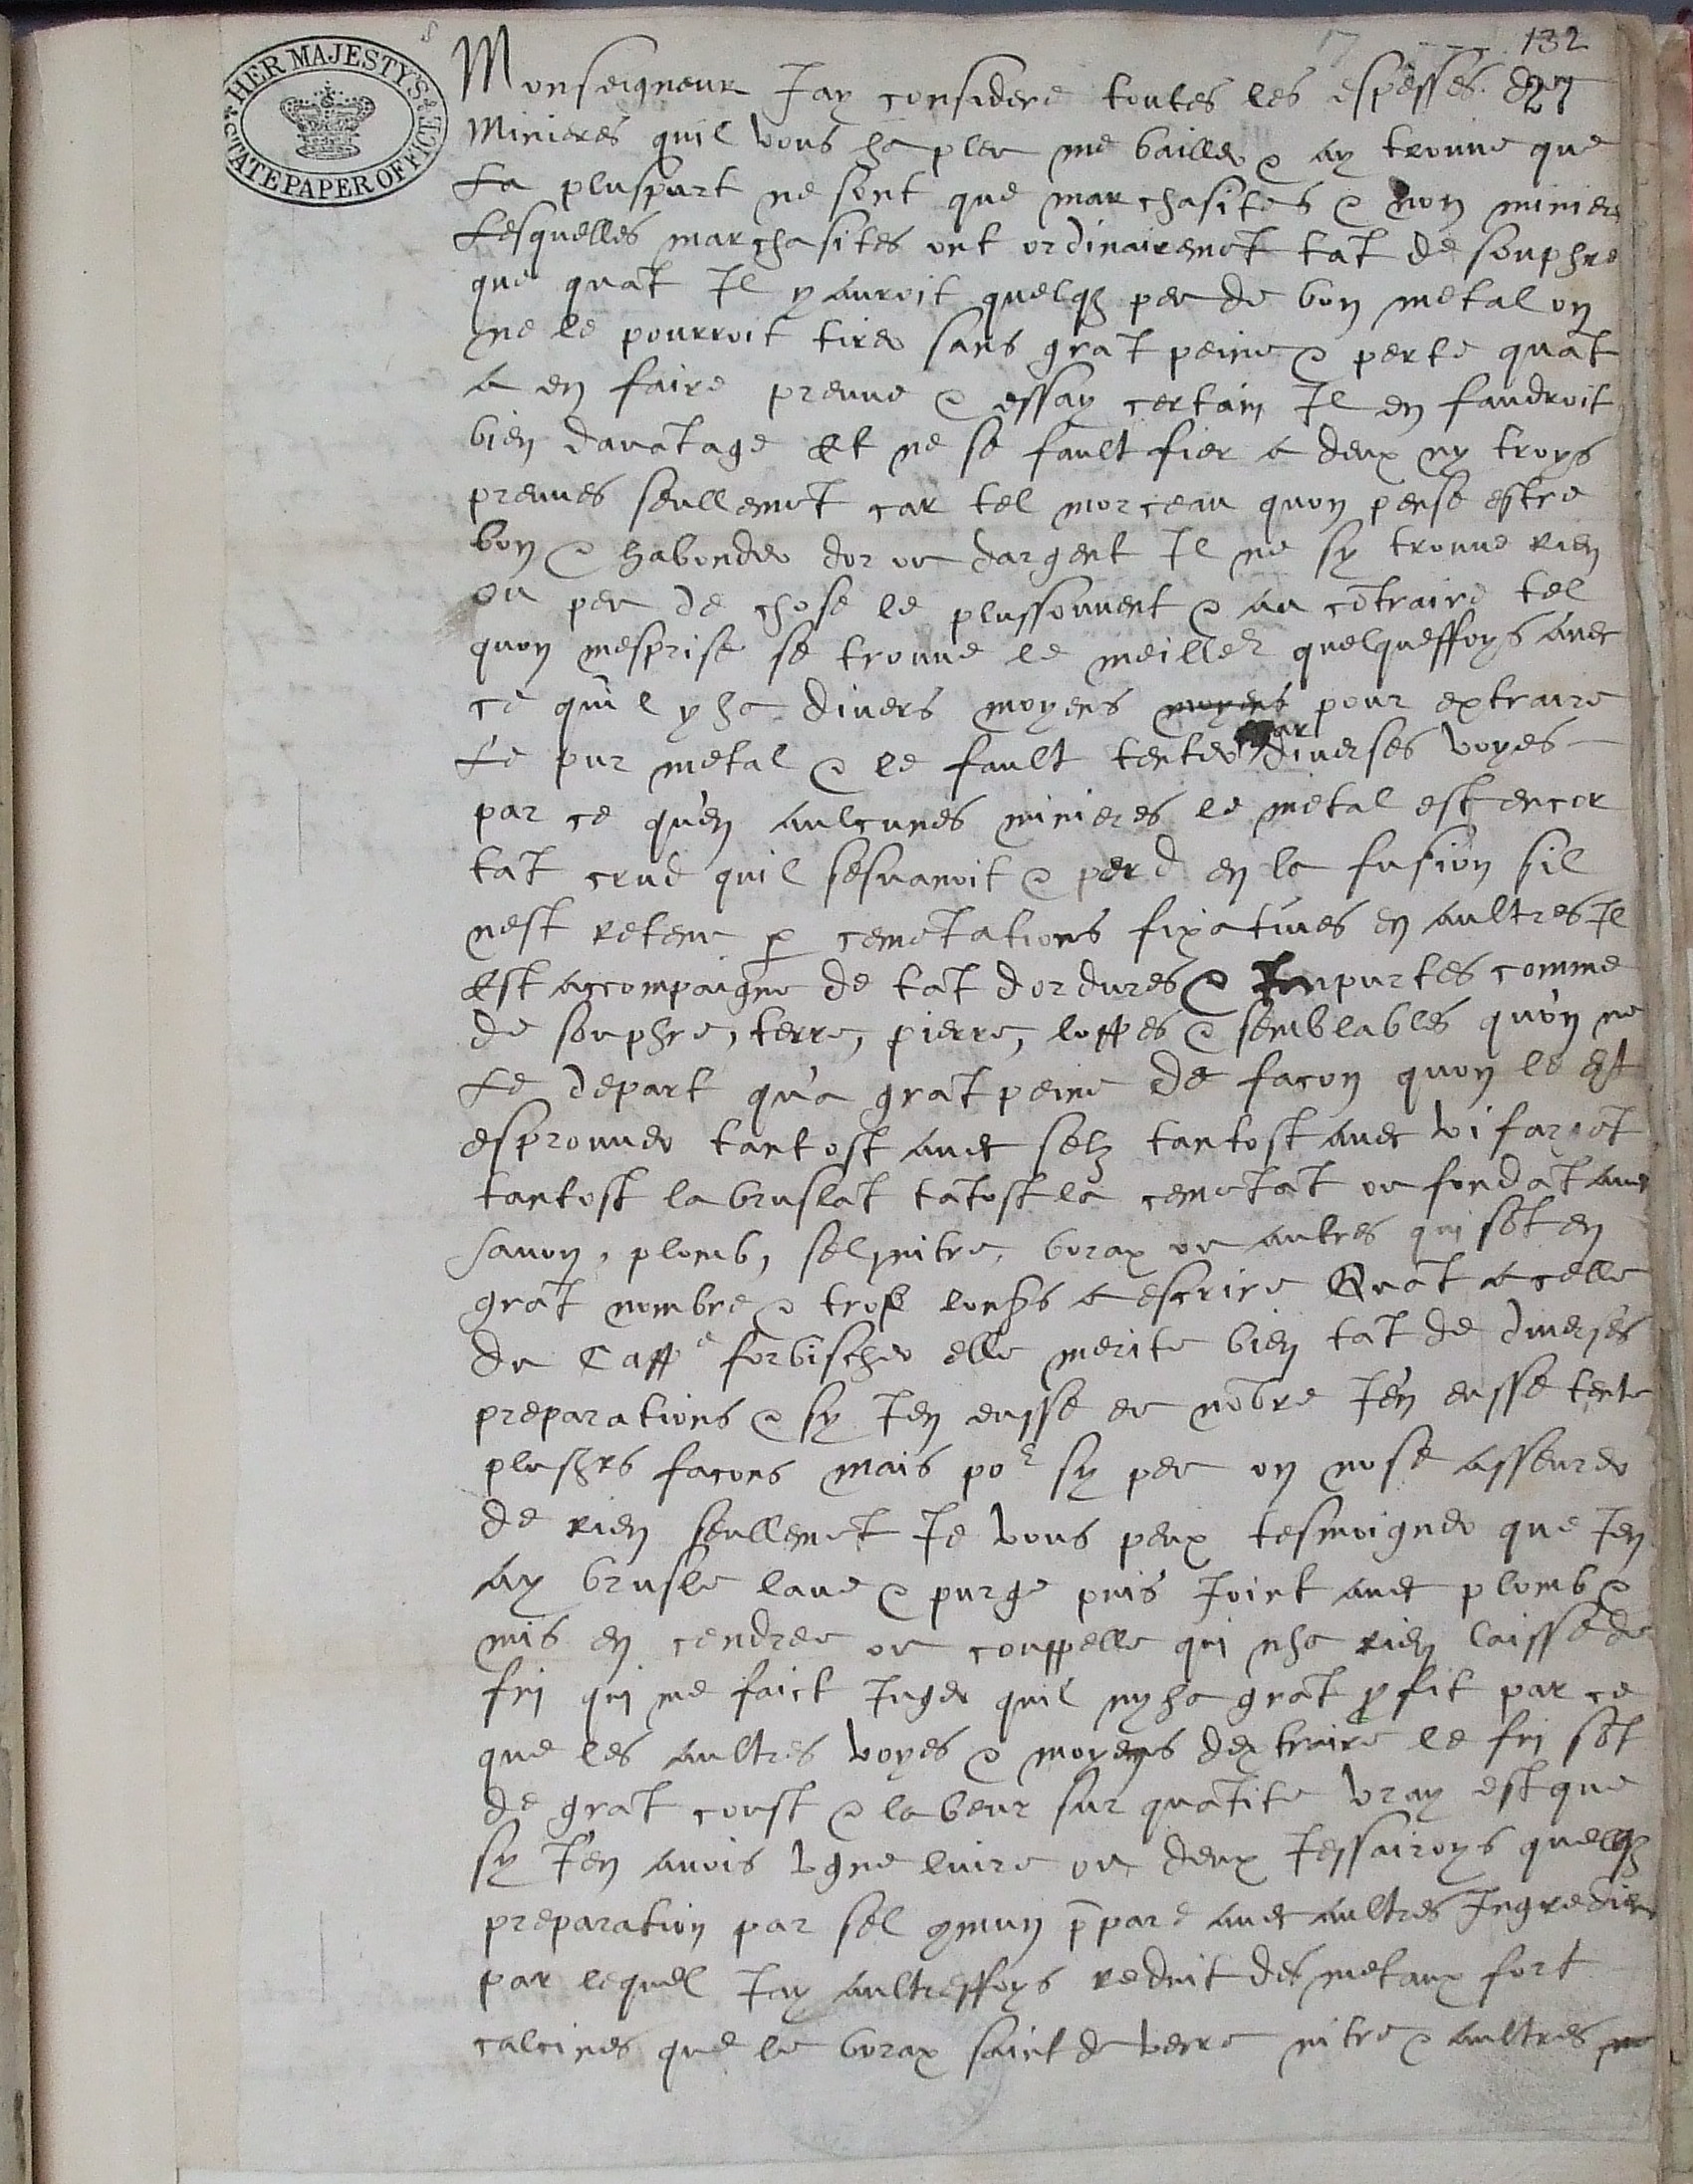 132
27
HER MAJESTY'S
STATE PAPER OFFICE
Monseigneur Jay considere toutes les espesses de
minieres quil vous ha pleu me bailler & ay trouue que
La pluspart ne sont que marchasites & non miniere
Lesquelles marchasites ont ordinairemēt tāt de souphre
que quāt Il y auroit quelqz peu de bon metal on
ne le pourroit tirer sans grāt peine & perte quāt
a en faire preuue & essay certain Il en faudroit
bien dauātage Et ne se fault fier a deux ny troys
preuues seullemēt car tel morceau quon pense estre
bon & habonder dor ou dargent Il ne sy trouue rien
ou peu de chose le plussouuent & au cōtraire tel
quon mesprise se trouue le meilleur quelqueffoys auec
ce quil y ha diuers moyens moyens pour extraire
Le pur metal & le fault tenter par diuerses voyes
par ce quen aulcunes minieres le metal est encor
tāt crud quil sesuanoit & perd en la fusion sil
nest retenu p cemētations fixatiues en aultres Il
Est accompaigne de tāt dordures & Impurtes comme
de souphre, terre, pierre, loppes & semblables quon ne
Le depart qua grāt peine De facon quon le doit
esprouuer tantost auec selz tantost auec vif argēt
tantost la bruslāt tātost la cemētāt ou fondāt auec
sauon, plomb, sel, nitre, borax ou autres qui sōt en
grāt nombre & trop longs a escrire Quāt a celle
du Cappe forbischer elle merite bien tāt de diuerses
preparations & sy Jen eusse eu nōbre Jen eusse tente
plusrs facons mais por sy peu on nose asseurer
de rien seullemēt Je vous peux tesmoigner que Jen
ay brusle laue & purge puis Joint auec plomb &
mis en cendree ou couppelle qui nha rien laisse de
fin qui me faict Juger quil nyha grāt pfit par ce
que les aultres voyes & moyens dextraire le fin sōt
de grāt coust & labeur sur quātite vray est que
sy Jen auois vgne liure ou deux Jessairoys quelqz
preparation par sel gmun p̄pare auec aultres Ingrediens
par lequel Jay aultreffoys reduit des metaux fort
calcines que le borax saint de verre nitre & aultres ne